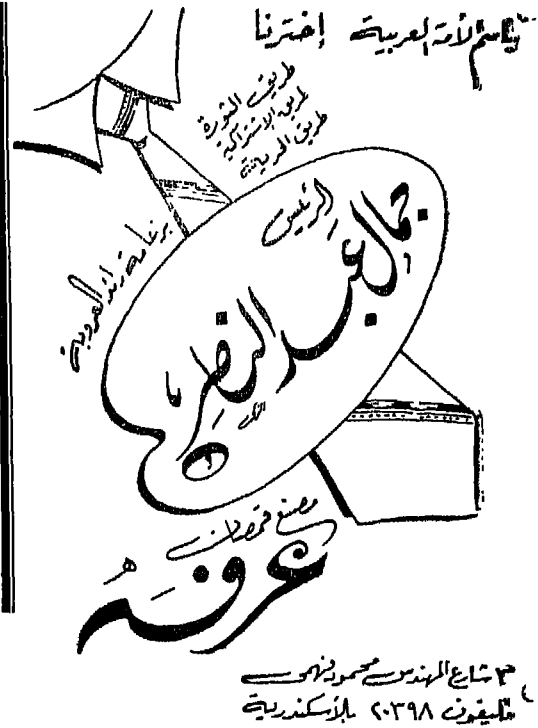 باسم الأمة العربية إخترنا
طريق الثورة
طريق الاشتراكية
طريق الحرية
بزعامة رائد العروبة
الرئيس
جمال عبد الناصر
مصنع قمصان
عرفه
٣ شارع المهندس محمود فهمى
تليفون ٢٠٣٩٨ بالأسكندرية